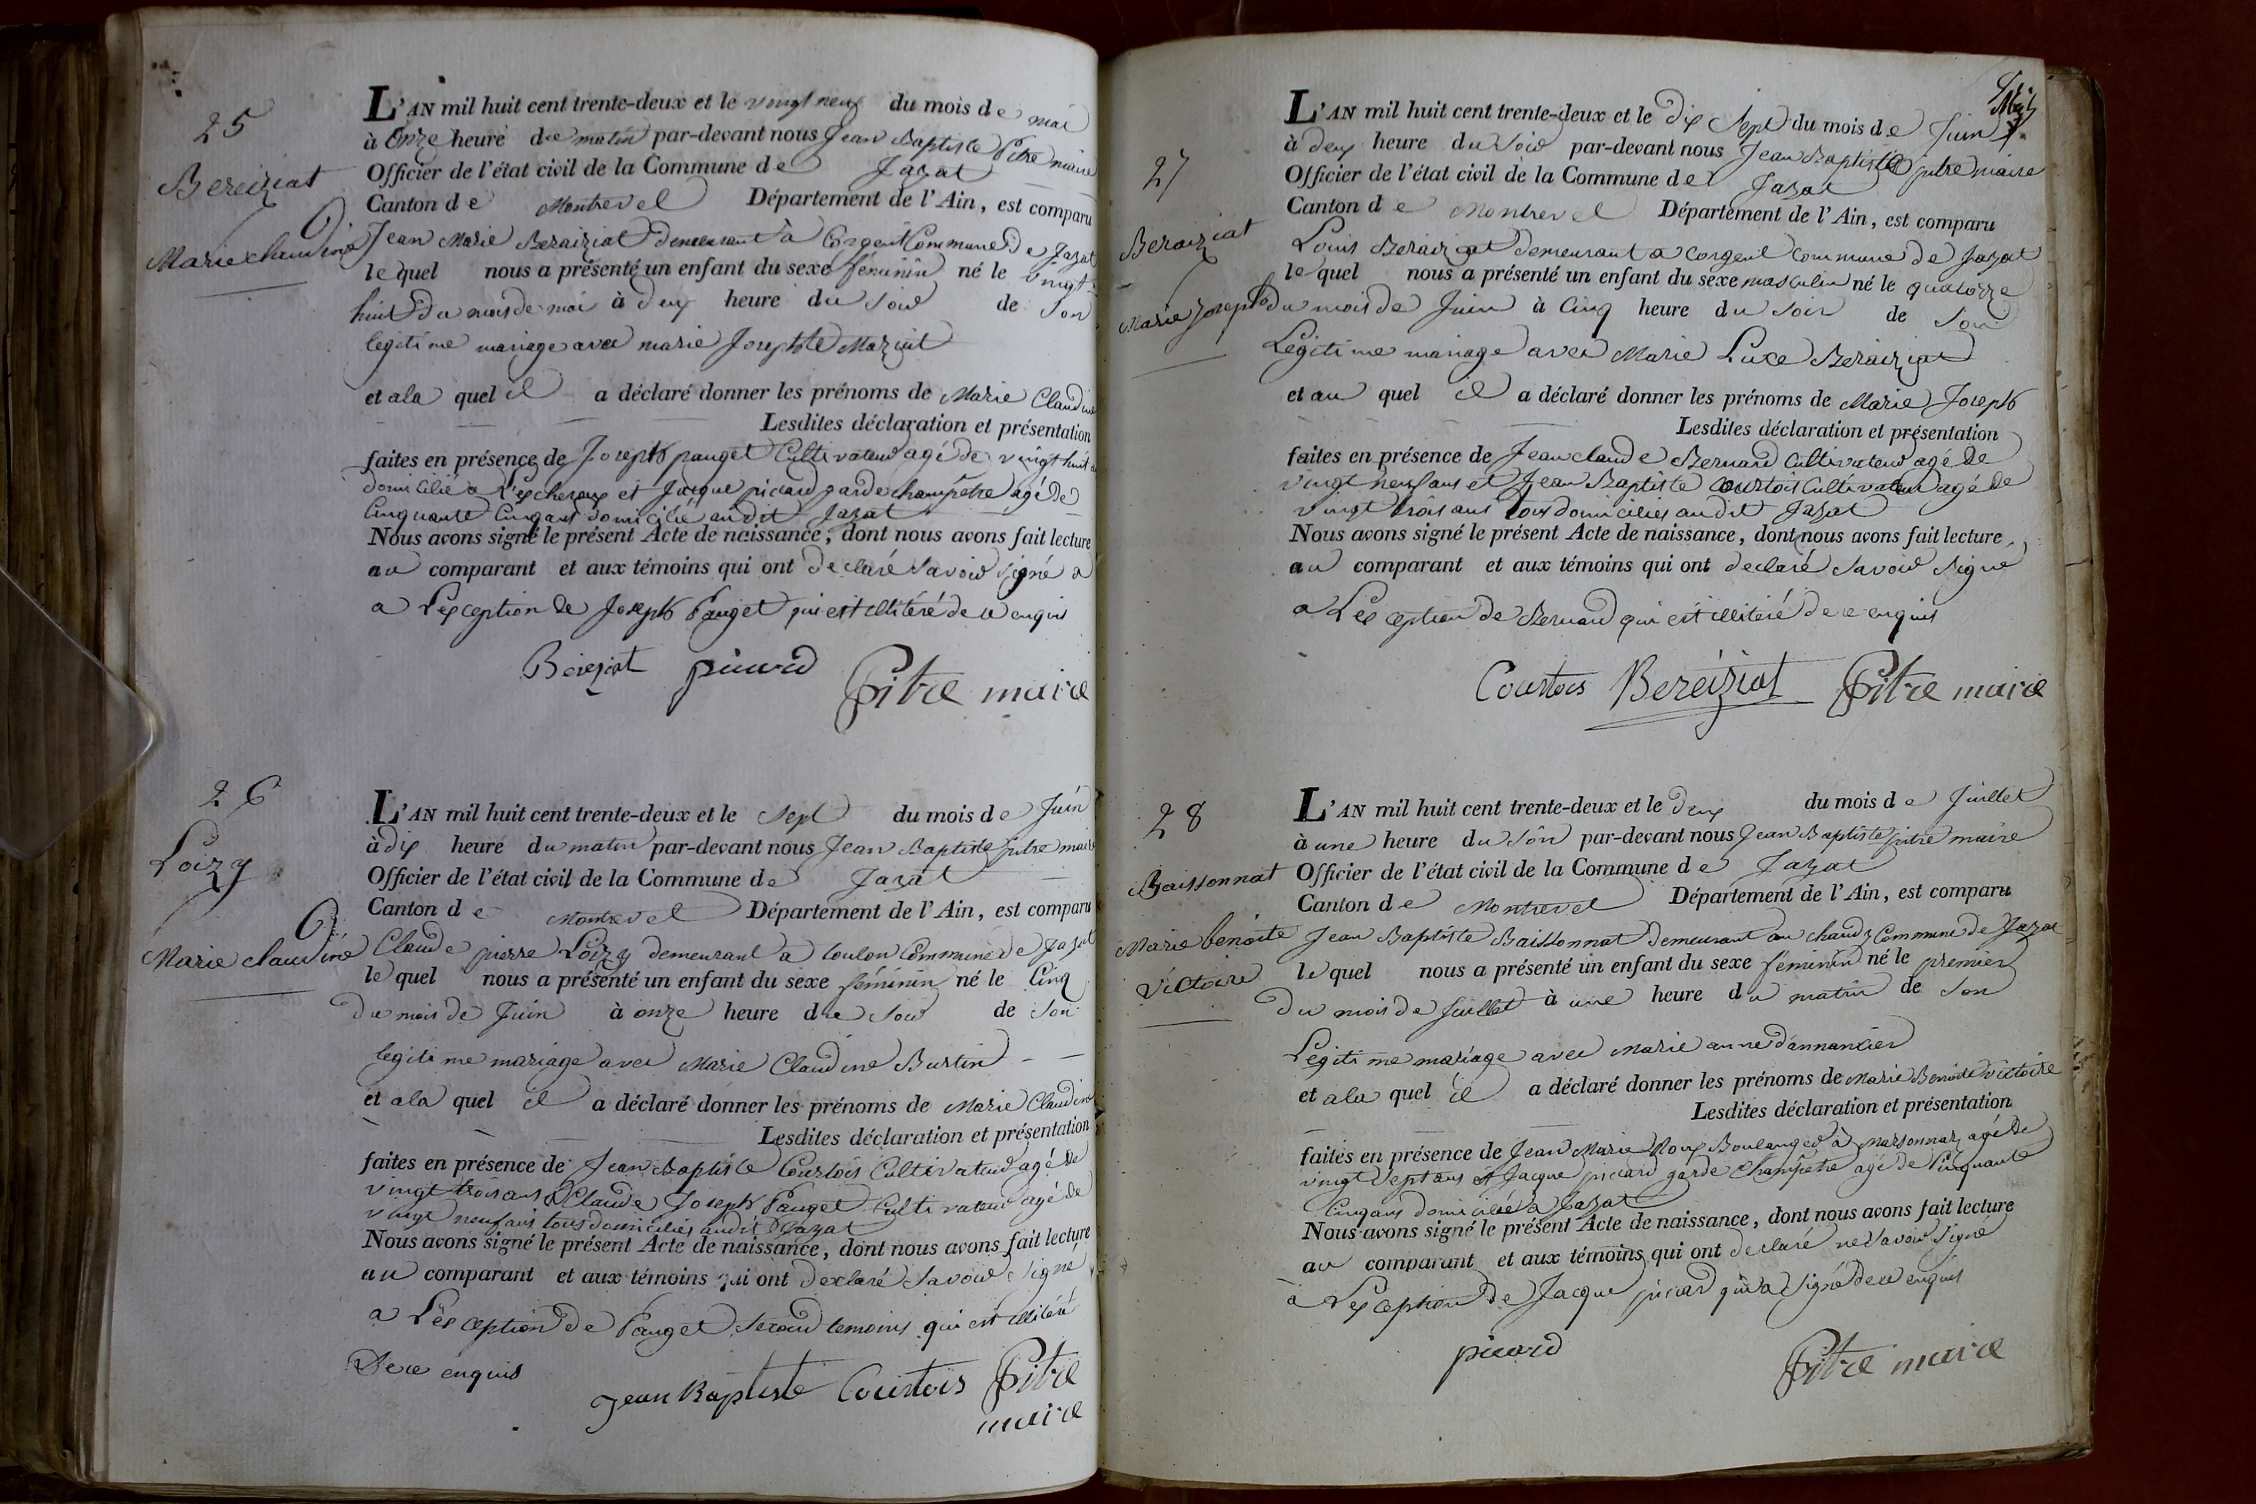 25
Bereiziat
Marie claudine
L'AN mil huit cent trente-deux et le vingt neuf du mois de mai
à Onze heure du matin par-devant nous Jean Baptiste Pitre maire
Officier de l'état civil de la Commune de Jazat
Canton de Montrevel Département de l'Ain, est comparu
Jean Marie Beraiziat demeurant à Corgent Commune De Jazat
le quel nous a présenté un enfant du sexe féminin né le vingt
huit du mois de mai à deux heure du soir de son
legitime mariage avec marie Josephte Maziut
et a la quel il a déclaré donner les prénoms de Marie Claudine
Lesdites déclaration et présentation
faites en présence de Joseph pauget Cultivateur agé de vingt huit
domicilié a L'escheroux et Jacque picard garde champêtre agé de
Cinquante Cinq ans domicilié au dit Jazat
Nous avons signé le présent Acte de naissance, dont nous avons fait lecture
au comparant et aux témoins qui ont declaré Savoir Signé a
a L'exception de Joseph Pauget qui est illitéré de ce enquis
Béreziat picard Pitre maire
26
Loizy
Marie claudine
L'AN mil huit cent trente-deux et le Sept du mois de Juin
à dix heure du matin par-devant nous Jean Baptiste pitre maire
Officier de l'état civil de la Commune de Jazat
Canton de Montrevel Département de l'Ain, est comparu
Claude pierre Loizy demeurant a toulon Commune de Jazat
le quel nous a présenté un enfant du sexe féminin né le Cinq
Du mois de Juin à onze heure du Soir de son
legitime mariage avec Marie Claudine Burtin
et a la quel il a déclaré donner les prénoms de Marie Claudine
Lesdites déclaration et présentation
faites en présence de Jean Baptiste Courtois Cultivateur agé de
vingt trois ans & Claude Joseph Pauget Cultivateur agé de
vingt neuf ans tous domiciliés au dit Jazat
Nous avons signé le présent Acte de naissance, dont nous avons fait lecture
au comparant et aux témoins qui ont declaré Savoir Signé
a L'exception de Pauget Second temoins qui est illitéré
De ce enquis
Jean Baptiste Courtois Pitre
maire
27
Beraiziat
Marie Joseph
L'AN mil huit cent trente-deux et le dix Sept du mois de Juin
à deux heure du Soir par-devant nous Jean Baptiste pitre maire
Officier de l'état civil de la Commune de Jazat
Canton de Montrevel Département de l'Ain, est comparu
Louis Beraiziat demeurant a corgent Commune de Jazat
le quel nous a présenté un enfant du sexe masculin né le quatorze
du mois de Juin à Cinq heure du Soir de Son
Legitime mariage avec Marie Luce Beraiziat
et au quel il a déclaré donner les prénoms de Marie Joseph
Lesdites déclaration et présentation
faites en présence de Jean claude Bernard Cultivateur agé de
vingt neuf ans et Jean Baptiste Courtois Cultivateur agé de
vingt trois ans tous domiciliés au dit Jazat
Nous avons signé le présent Acte de naissance, dont nous avons fait lecture
au comparant et aux témoins qui ont declaré Savoir Signé
a L'exception de Bernard qui est illitéré de ce enquis
Courtois Beréiziat Pitre maire
28
Baissonnat
Marie benoite
Victoire
L'AN mil huit cent trente-deux et le deux du mois de Juillet
à une heure du Soir par-devant nous Jean Baptiste pitre maire
Officier de l'état civil de la Commune de Jazat
Canton de Montrevel Département de l'Ain, est comparu
Jean Baptiste Baissonnat demeurant au chaud Commune de Jazat
le quel nous a présenté un enfant du sexe féminin né le premier
Du mois de Juillet à une heure du matin de Son
Legitime mariage avec Marie anne dannancier
et a la quel il a déclaré donner les prénoms de Marie Benoite Victoire
Lesdites déclaration et présentation
faites en présence de Jean Marie Roux Boulanger à Marsonnaz agé de
vingt Sept ans et Jacque picard garde Champêtre agé de Cinquante
Cinq ans domicilié à Jazat
Nous avons signé le présent Acte de naissance, dont nous avons fait lecture
au comparant et aux témoins qui ont declaré ne Savoir Signé
à L'exception de Jacque picard qui a Signé de ce enquis
picard Pitre maire